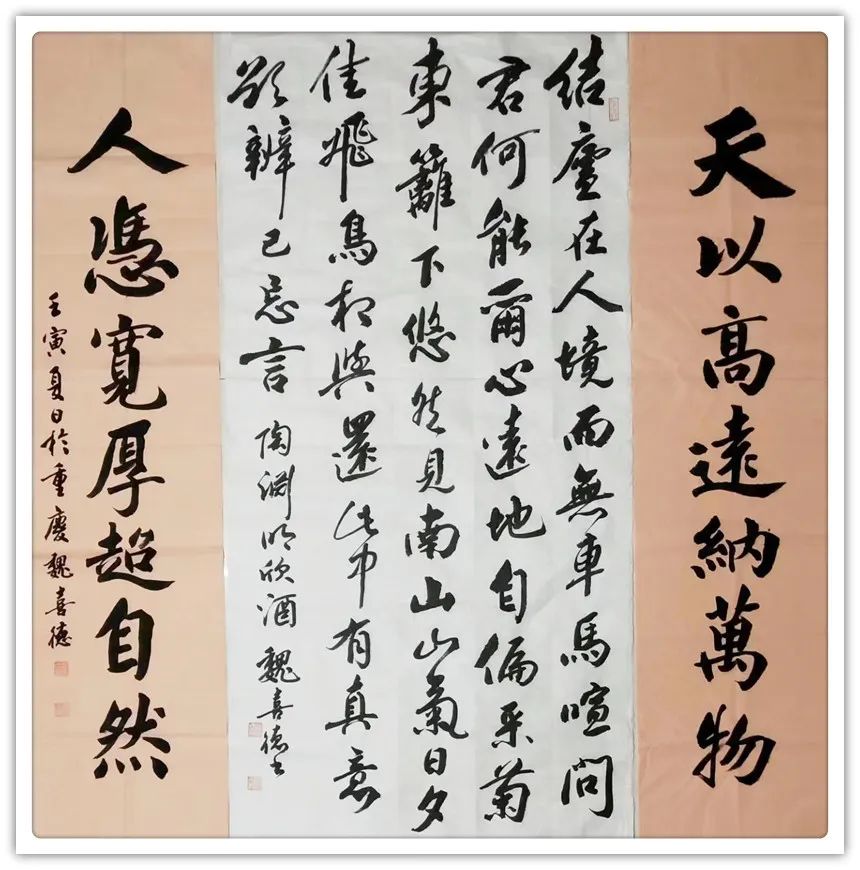 天以高遠納萬物
結廬在人境而無車馬喧問
君何能爾心遠地自偏采菊
東籬下悠然見南山山氣日夕
佳飛鳥相與還此中有真意
欲辨已忘言 陶淵明飲酒 魏喜德书
人憑寬厚超自然
壬寅夏日於重慶魏喜德